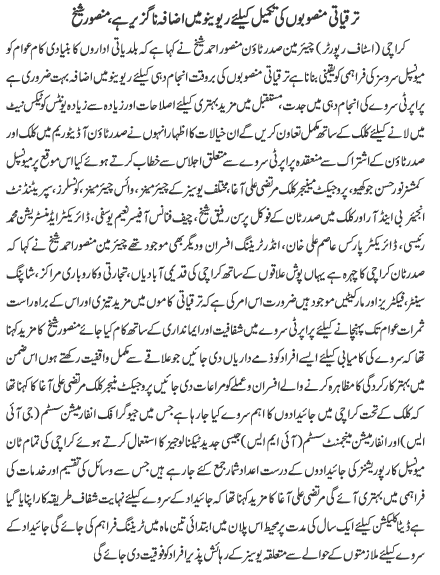 ترقیاتی منصوبوں کی تکمیل کیلئے ریونیو میں اضافہ ناگزیر ہے، منصور شیخ
کراچی (اسٹاف رپورٹر) چیئرمین صدر ٹاؤن منصور احمد شیخ نے کہا ہے کہ بلدیاتی اداروں کا بنیادی کام عوام کو
میونسپل سروسز کی فراہمی کو یقینی بنانا ہے ترقیاتی منصوبوں کی بروقت انجام دہی کیلئے ریونیو میں اضافہ بہت ضروری ہے
پراپرٹی سروے کی انجام دہی میں جدت، مستقبل میں مزید بہتری کیلئے اصلاحات اور زیادہ سے زیادہ یونٹس کو ٹیکس نیٹ
میں لانے کیلئے کلک کے ساتھ مکمل تعاون کریں گے ان خیالات کا اظہار انہوں نے صدر ٹاؤن آڈیٹوریم میں کلک اور
صدر ٹاؤن کے اشتراک سے منعقدہ پراپرٹی سروے سے متعلق اجلاس سے خطاب کرتے ہوئے کیا اس موقع پر میونسپل
کمشنر نور حسن جوکھیو، پروجیکٹ مینیجر کلک مرتضیٰ علی آغا، مختلف یوسیز کے چیئرمینز، وائس چیئرمینز، کونسلرز، سپرنٹنڈنٹ
انجینئر بی اینڈ آر اور کلک میں صدر ٹاؤن کے فوکل پرسن رفیق شیخ، چیف فنانس آفیسر نعیم یوسفی، ڈائریکٹر ایڈمنسٹریشن محمد
رئیسی، ڈائریکٹر پارکس عاصم علی خان، انڈر ٹریننگ افسران و دیگر بھی موجود تھے چیئرمین منصور احمد شیخ نے کہا کہ
صدر ٹاؤن کراچی کا چہرہ ہے یہاں پوش علاقوں کے ساتھ کراچی کی قدیمی آبادیاں، تجارتی و کاروباری مراکز، شاپنگ
سینٹرز، فیکٹریز اور مارکیٹیں موجود ہیں ضرورت اس امر کی ہے کہ ترقیاتی کاموں میں مزید تیزی اور اس کے براہ راست
ثمرات عوام تک پہنچانے کیلئے پراپرٹی سروے میں شفافیت اور ایمانداری کے ساتھ کام کیا جائے منصور شیخ کا مزید کہنا
تھا کہ سروے کی کامیابی کیلئے ایسے افراد کو ذمے داریاں دی جائیں جو علاقے سے مکمل واقفیت رکھتے ہوں اس ضمن
میں بہتر کارکردگی کا مظاہرہ کرنے والے افسران و عملے کو مراعات دی جائیں پروجیکٹ مینیجر کلک مرتضیٰ علی آغا کا کہنا تھا
کہ کلک کے تحت کراچی میں جائیدادوں کا اہم سروے کیا جا رہا ہے جس میں جیوگرافک انفارمیشن سسٹم (جی آئی
ایس) اور انفارمیشن مینجمنٹ سسٹم (آئی ایم ایس) جیسی جدید ٹیکنالوجیز کا استعمال کرتے ہوئے کراچی کی تمام ٹاؤن
میونسپل کارپوریشنز کی جائیدادوں کے درست اعداد شمار جمع کئے جا رہے ہیں جس سے وسائل کی تقسیم اور خدمات کی
فراہمی میں بہتری آئے گی مرتضیٰ علی آغا کا مزید کہنا تھا کہ جائیداد کے سروے کیلئے نہایت شفاف طریقہ کار اپنایا گیا
ہے ڈیٹا کلیکشن کیلئے ایک سال کی مدت پر محیط اس پلان میں ابتدائی تین ماہ میں ٹریننگ فراہم کی جائے گی جائیداد کے
سروے کیلئے ملازمتوں کے حوالے سے متعلقہ یوسیز کے رہائش پذیر افراد کو فوقیت دی جائے گی